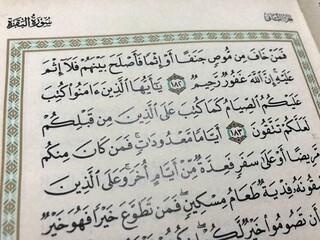 سُورَةُ البَقَرَةِ
الجزء الثاني
فَمَنْ خَافَ مِن مُّوصٍ جَنَفًا أَوْ إِثْمًا فَأَصْلَحَ بَيْنَهُمْ فَلَآ إِثْمَ
عَلَيْهِ إِنَّ ٱللَّهَ غَفُورٌ رَّحِيمٌ ١٨٢ يَٰٓأَيُّهَا ٱلَّذِينَ ءَامَنُوا۟ كُتِبَ
عَلَيْكُمُ ٱلصِّيَامُ كَمَا كُتِبَ عَلَى ٱلَّذِينَ مِن قَبْلِكُمْ
لَعَلَّكُمْ تَتَّقُونَ ١٨٣ أَيَّامًا مَّعْدُودَٰتٍ فَمَن كَانَ مِنكُم
مَّرِيضًا أَوْ عَلَىٰ سَفَرٍ فَعِدَّةٌ مِّنْ أَيَّامٍ أُخَرَ وَعَلَى ٱلَّذِينَ
فِدْيَةٌ طَعَامُ مِسْكِينٍ فَمَن تَطَوَّعَ خَيْرًا فَهُوَ خَيْرٌ
تَصُومُوا۟ خَيْرٌ لَّكُمْ